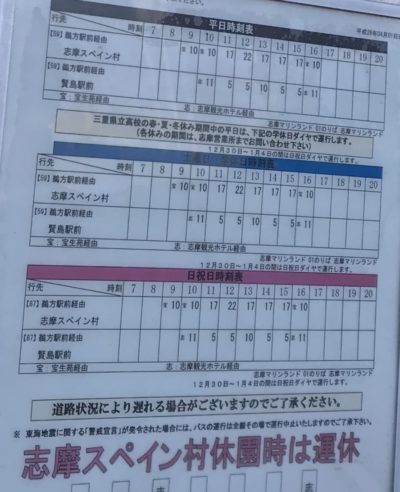 平日時刻表
行先 時刻 7 8 9 10 11 12 13 14 15 16 17 18 19 20
[59] 鵜方駅前経由 志摩スペイン村 10 10 17 22 17 17 10
[59] 鵜方駅前経由 賢島駅前 11 5 5 10 5 5 11
宝:宝生苑経由 志:志摩観光ホテル経由
志摩マリンランド 01のりば 志摩マリンランド
三重県立高校の春・夏・冬休み期間中の平日は、下記の学休日ダイヤで運行します。
(各休みの期間は、志摩営業所までお問い合わせ下さい)
12月30日~1月4日の間は日祝日ダイヤで運行します。
行先 時刻 7 8 9 10 11 12 13 14 15 16 17 18 19 20
[59] 鵜方駅前経由 志摩スペイン村 10 10 17 22 17 17 10
[59] 鵜方駅前経由 賢島駅前 11 5 5 10 5 5 11
宝:宝生苑経由 志:志摩観光ホテル経由
志摩マリンランド 01のりば 志摩マリンランド
12月30日~1月4日の間は日祝日ダイヤで運行します。
日祝日時刻表
行先 時刻 7 8 9 10 11 12 13 14 15 16 17 18 19 20
鵜方駅前経由 志摩スペイン村 10 10 17 22 17 17 10
鵜方駅前経由 賢島駅前 11 5 5 10 5 5 11
宝:宝生苑経由 志:志摩観光ホテル経由
志摩マリンランド 01のりば 志摩マリンランド
12月30日~1月4日の間は日祝日ダイヤで運行します。
道路状況により遅れる場合がございますのでご了承ください。
※ 東海地震に関する「警戒宣言」が発令された場合には、バスの運行は全線その場で運行中止いたしますのでご了承下さい。
志摩スペイン村休園時は運休